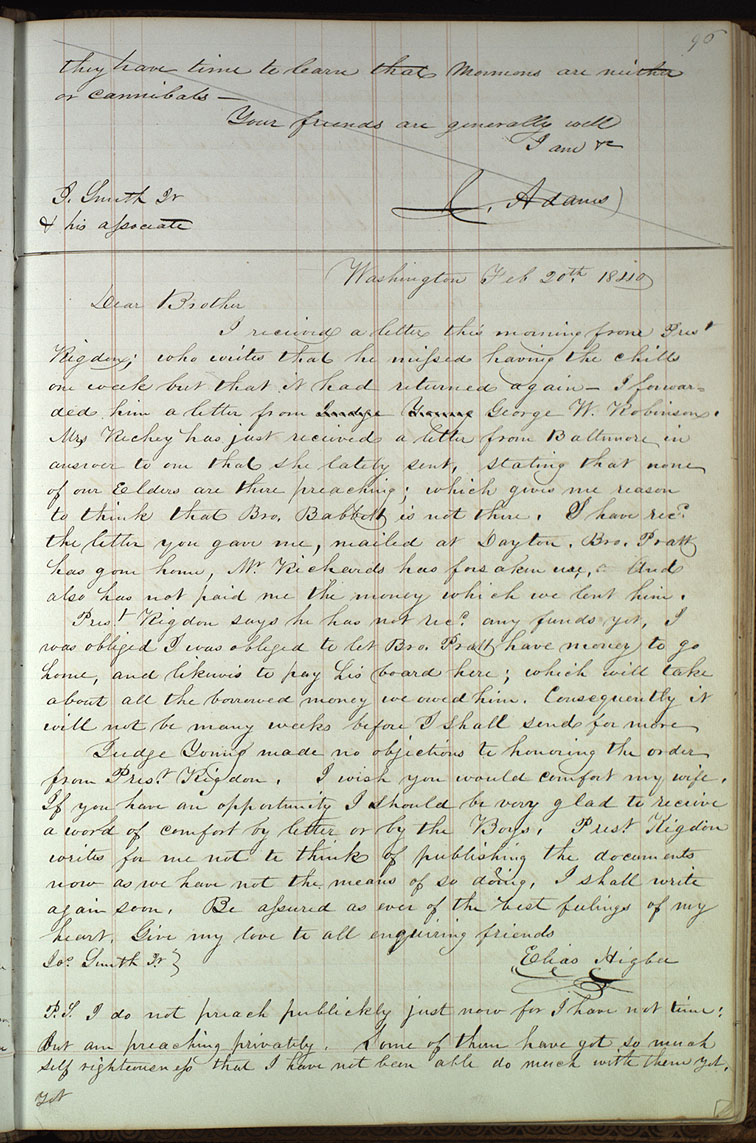 95
they have time to learn that Mormons are neither
or cannibals —
Your friends are generally well
I am &c
J. Smith Jr
& his associate
J. Adams
Washington Feb 20th. 1840
Dear Brother
I received a letter this morning from Prest
Rigdon; who writes that he missed having the chills
one week but that it had returned again — I forwar-
ded him a letter from Judge Young George W. Robinson.
Mrs Richey has just received a letter from Baltimore in
answer to one that she lately sent, stating that none
of our Elders are there preaching; which gives me reason
to think that Bro. Babbott is not there. I have recd.
the letter you gave me, mailed at Dayton. Bro. Pratt
has gone home, Mr. Richards has forsaken us, And
also has not paid me the money which we lent him.
Prest Rigdon says he has not recd. any funds yet, I
was obliged I was obliged to let Bro. Pratt have money to go
home, and likewis to pay his board here; which will take
about all the borrowed money we owed him. Consequently it
will not be many weeks before I shall send for more
Judge Young made no objections to honoring the order
from Prest. Rigdon. I wish you would comfort my wife.
If you have an opportunity I should be very glad to receive
a word of comfort by letter or by the Boys. Prest. Rigdon
writes for me not to think of publishing the documents
now as we have not the means of so doing. I shall write
again soon. Be assured as ever of the best feelings of my
heart. Give my love to all enquiring friends
Jos. Smith Jr }
Elias Higbee
P.S. I do not preach publickly just now for I have not time:
But am preaching privately. Some of them have got so much
self righteousness that I have not been able do much with them yet.
yet